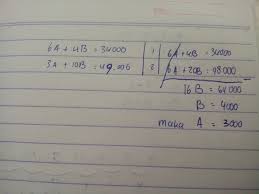 6A + 4B = 34000 | 1 | 6A + 4B = 34000
3A + 10B = 49.000 | 2 | 6A + 20B = 98000
16B = 64000
B = 4000
maka A = 3000